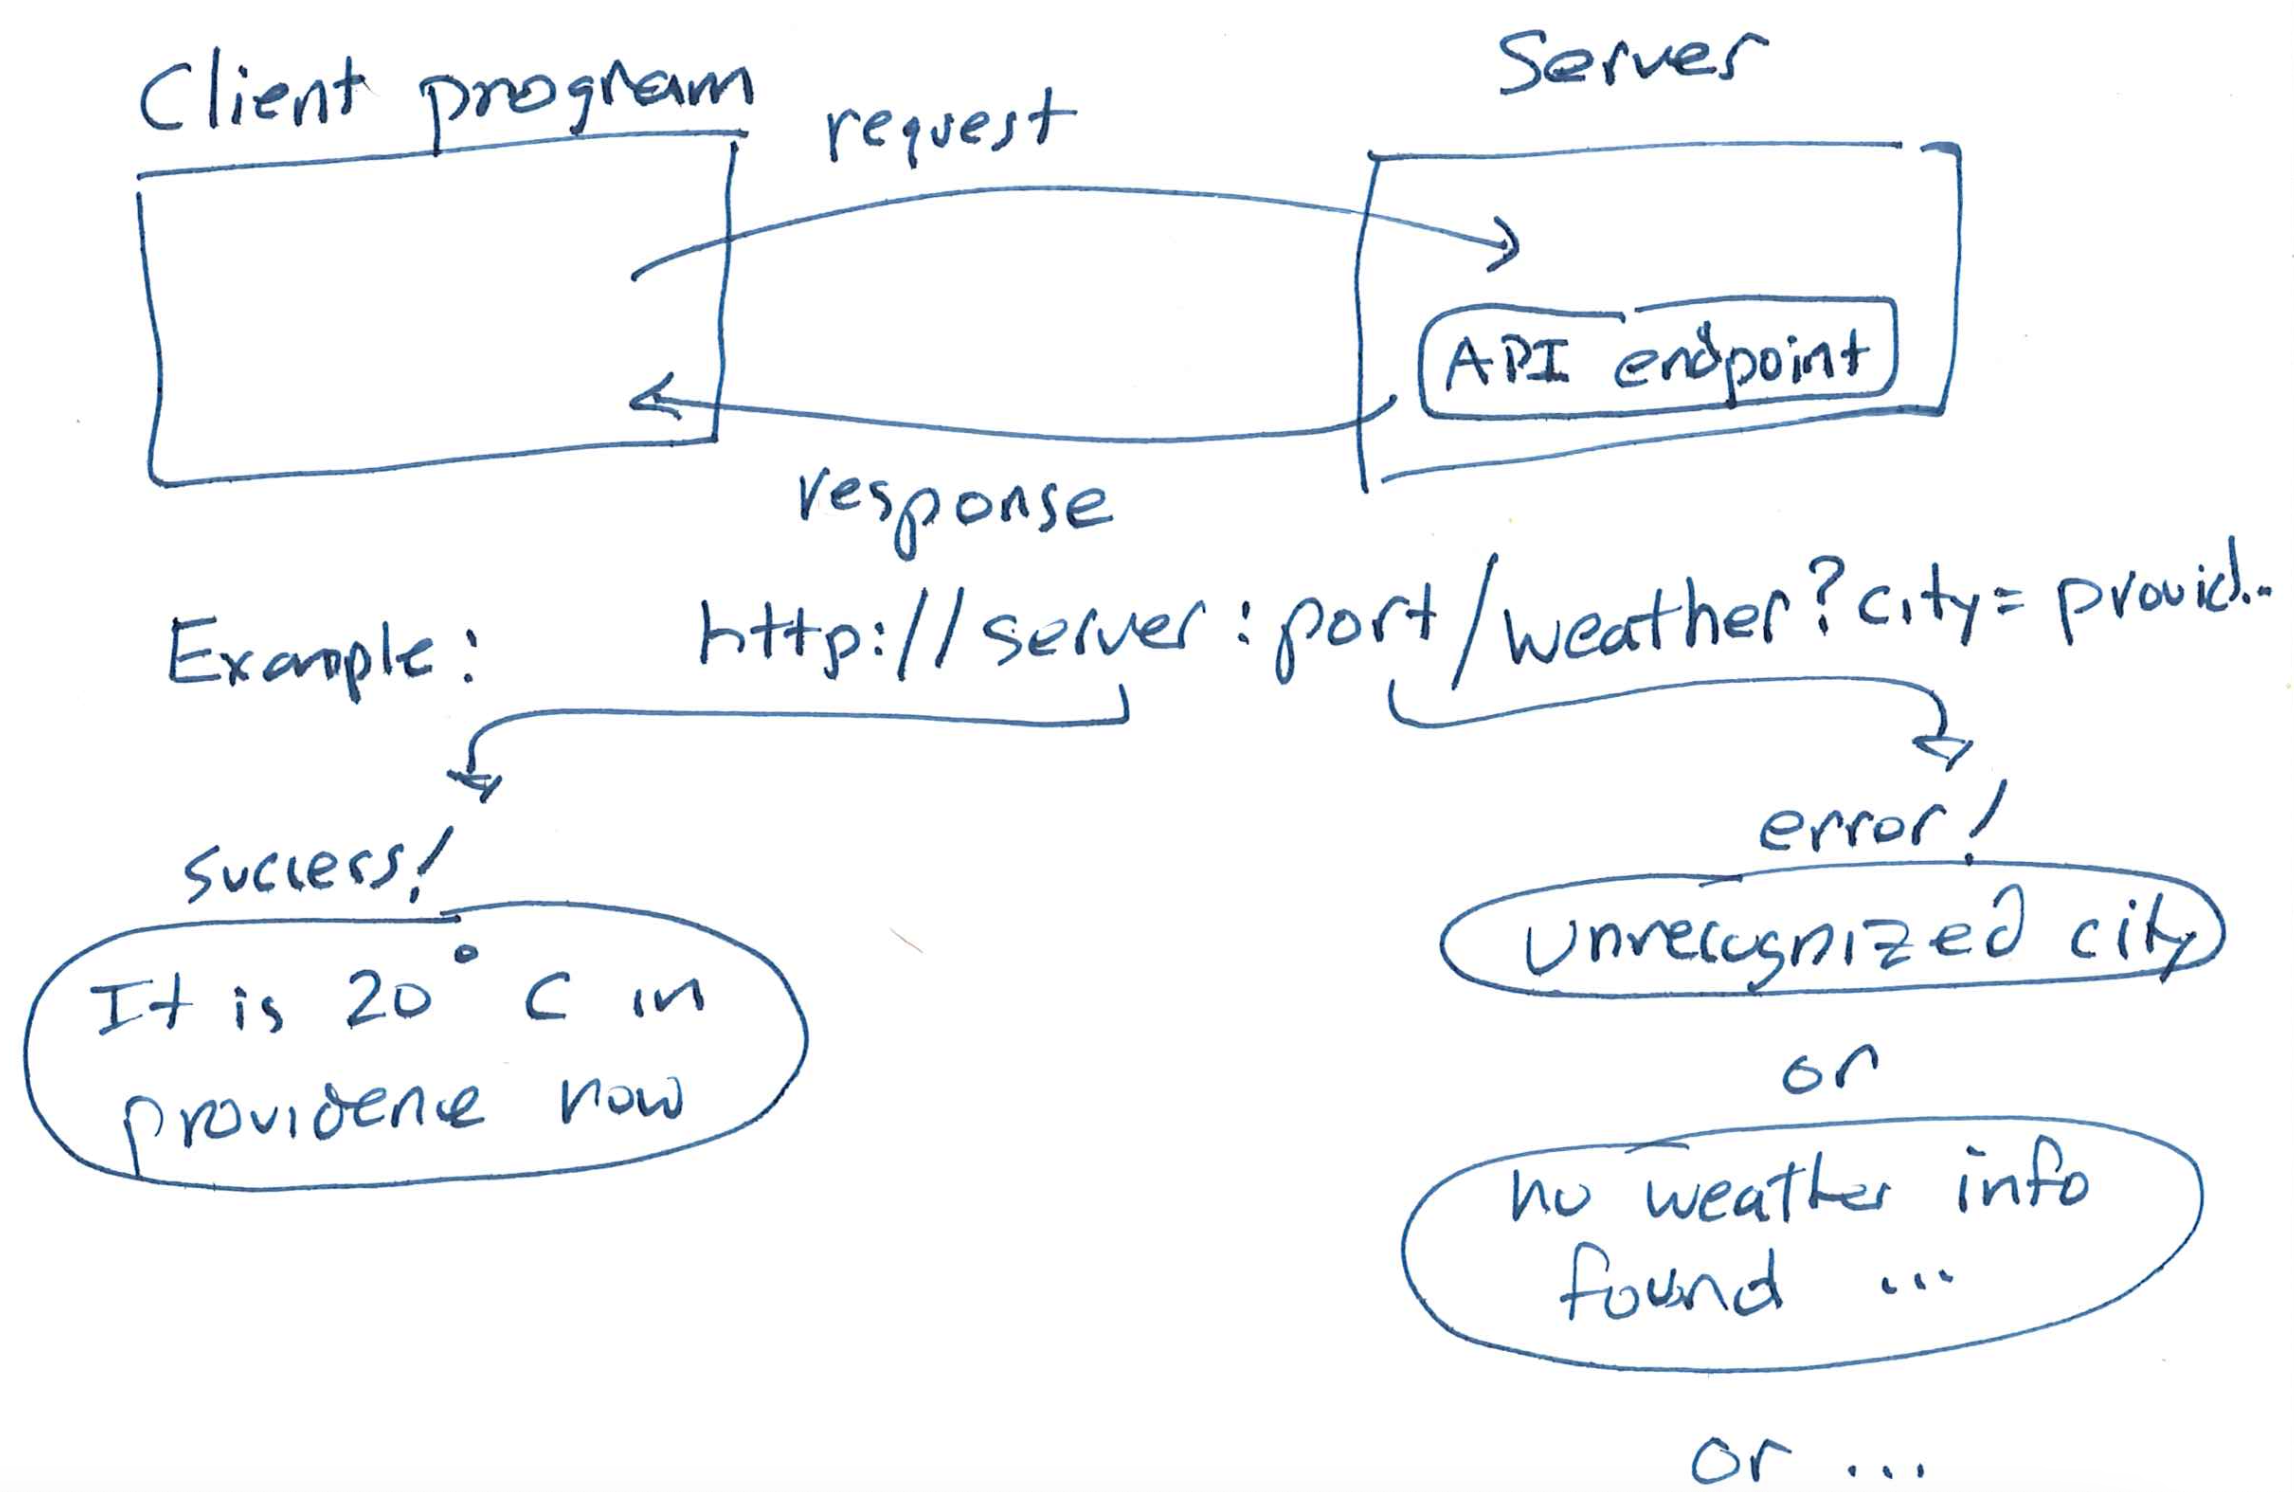 Client program
Server
request
API endpoint
response
Example: http://server:port/weather?city=provid..
success!
error!
It is 20° C in
providence now
Unrecognized city
or
no weather info
found ...
or ...